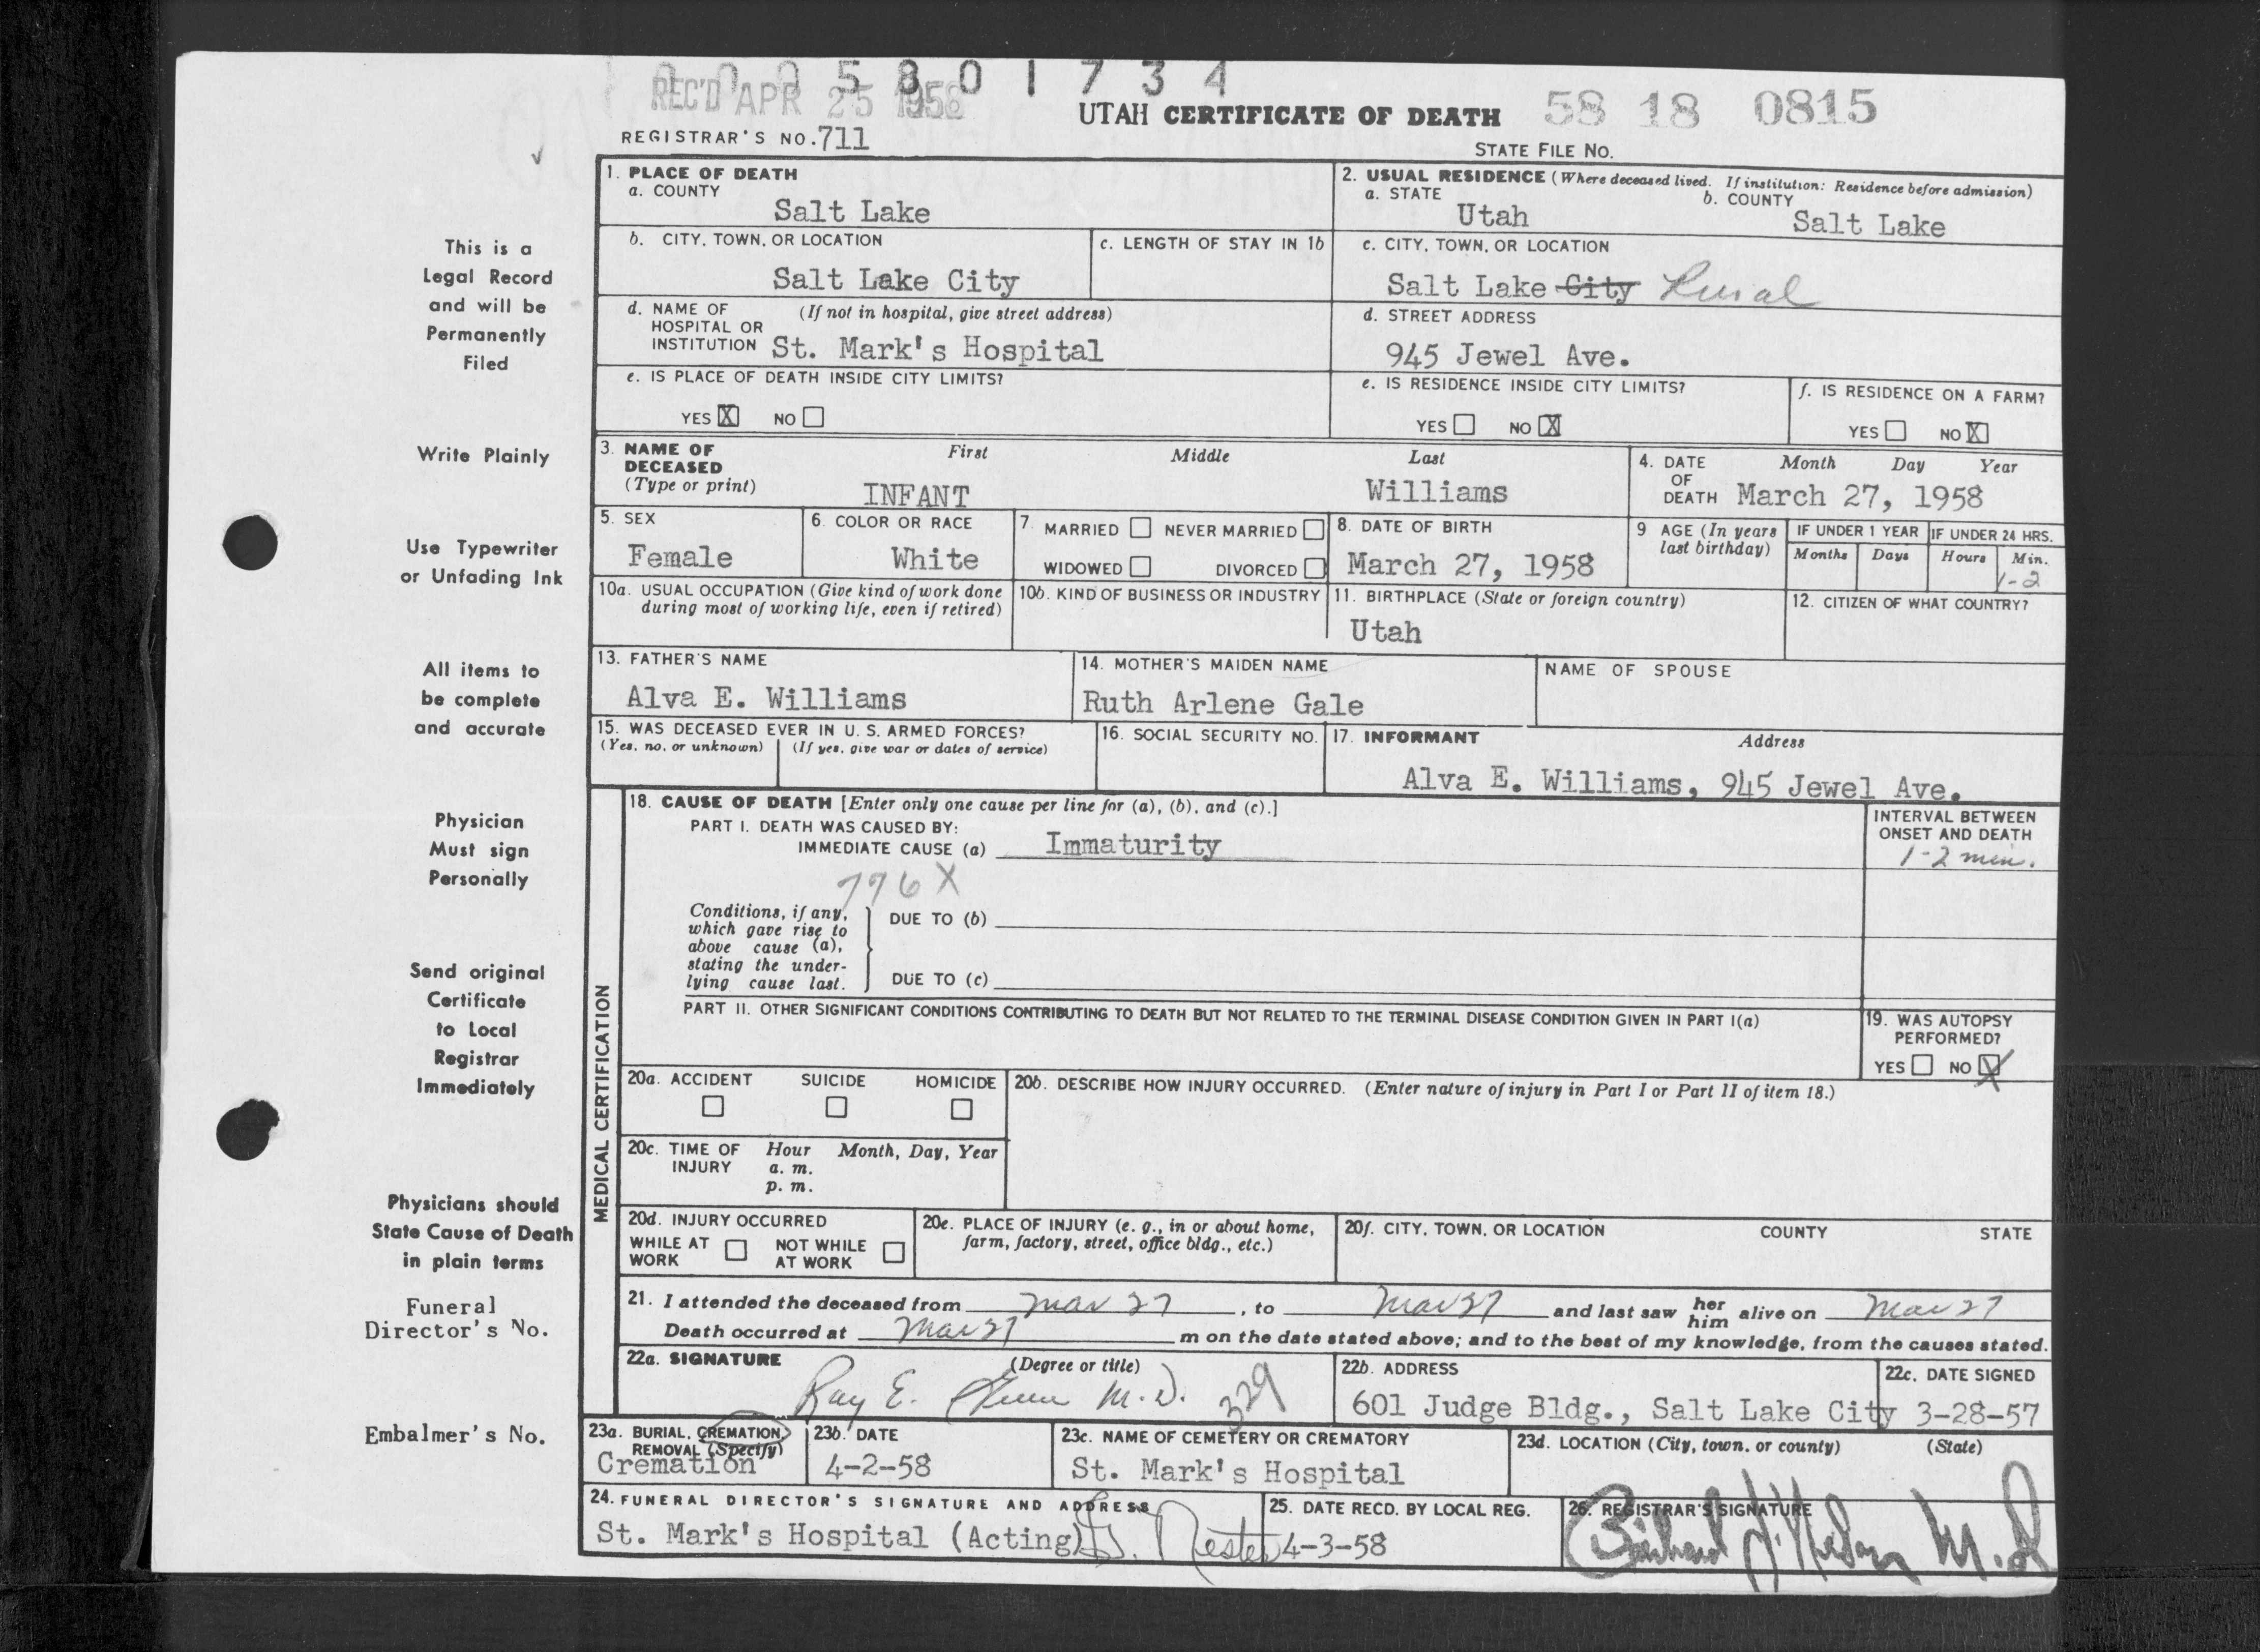 0 0 0 5 8 0 1 7 3 4
REC'D APR 25 1958
UTAH CERTIFICATE OF DEATH 58 18 0815
REGISTRAR'S NO. 711
STATE FILE NO.
This is a
Legal Record
and will be
Permanently
Filed
Write Plainly
Use Typewriter
or Unfading Ink
All items to
be complete
and accurate
Physician
Must sign
Personally
Send original
Certificate
to Local
Registrar
Immediately
Physicians should
State Cause of Death
in plain terms
Funeral
Director's No.
Embalmer's No.
1. PLACE OF DEATH
a. COUNTY
Salt Lake
2. USUAL RESIDENCE (Where deceased lived. If institution: Residence before admission)
a. STATE b. COUNTY
Utah Salt Lake
b. CITY, TOWN, OR LOCATION
Salt Lake City
c. LENGTH OF STAY IN 1b
c. CITY, TOWN, OR LOCATION
Salt Lake City Rural
d. NAME OF (If not in hospital, give street address)
HOSPITAL OR
INSTITUTION St. Mark's Hospital
d. STREET ADDRESS
945 Jewel Ave.
e. IS PLACE OF DEATH INSIDE CITY LIMITS?
YES X NO
e. IS RESIDENCE INSIDE CITY LIMITS?
YES NO X
f. IS RESIDENCE ON A FARM?
YES NO X
3. NAME OF First Middle Last
DECEASED
(Type or print)
INFANT Williams
4. DATE Month Day Year
OF
DEATH March 27, 1958
5. SEX
Female
6. COLOR OR RACE
White
7. MARRIED NEVER MARRIED
WIDOWED DIVORCED
8. DATE OF BIRTH
March 27, 1958
9 AGE (In years
last birthday)
IF UNDER 1 YEAR IF UNDER 24 HRS.
Months Days Hours Min.
1-2
10a. USUAL OCCUPATION (Give kind of work done
during most of working life, even if retired)
10b. KIND OF BUSINESS OR INDUSTRY
11. BIRTHPLACE (State or foreign country)
Utah
12. CITIZEN OF WHAT COUNTRY?
13. FATHER'S NAME
Alva E. Williams
14. MOTHER'S MAIDEN NAME
Ruth Arlene Gale
NAME OF SPOUSE
15. WAS DECEASED EVER IN U. S. ARMED FORCES?
(Yes, no, or unknown) (If yes, give war or dates of service)
16. SOCIAL SECURITY NO.
17. INFORMANT Address
Alva E. Williams, 945 Jewel Ave.
MEDICAL CERTIFICATION
18. CAUSE OF DEATH [Enter only one cause per line for (a), (b), and (c).]
PART I. DEATH WAS CAUSED BY:
IMMEDIATE CAUSE (a) Immaturity
INTERVAL BETWEEN
ONSET AND DEATH
1-2 min.
776 X
Conditions, if any,
which gave rise to
above cause (a),
stating the under-
lying cause last.
DUE TO (b)
DUE TO (c)
PART II. OTHER SIGNIFICANT CONDITIONS CONTRIBUTING TO DEATH BUT NOT RELATED TO THE TERMINAL DISEASE CONDITION GIVEN IN PART I(a)
19. WAS AUTOPSY
PERFORMED?
YES NO X
20a. ACCIDENT SUICIDE HOMICIDE
20b. DESCRIBE HOW INJURY OCCURRED. (Enter nature of injury in Part I or Part II of item 18.)
20c. TIME OF Hour Month, Day, Year
INJURY a. m.
p. m.
20d. INJURY OCCURRED
WHILE AT NOT WHILE
WORK AT WORK
20e. PLACE OF INJURY (e. g., in or about home,
farm, factory, street, office bldg., etc.)
20f. CITY, TOWN, OR LOCATION COUNTY STATE
21. I attended the deceased from Mar 27, to Mar 27 and last saw her him alive on Mar 27
Death occurred at Mar 27 m on the date stated above; and to the best of my knowledge, from the causes stated.
22a. SIGNATURE (Degree or title)
Ray E. M.D. 329
22b. ADDRESS
601 Judge Bldg., Salt Lake City
22c. DATE SIGNED
3-28-57
23a. BURIAL, CREMATION,
REMOVAL (Specify)
Cremation
23b. DATE
4-2-58
23c. NAME OF CEMETERY OR CREMATORY
St. Mark's Hospital
23d. LOCATION (City, town, or county) (State)
24. FUNERAL DIRECTOR'S SIGNATURE AND ADDRESS
St. Mark's Hospital (Acting)
25. DATE RECD. BY LOCAL REG.
4-3-58
26. REGISTRAR'S SIGNATURE
M.D